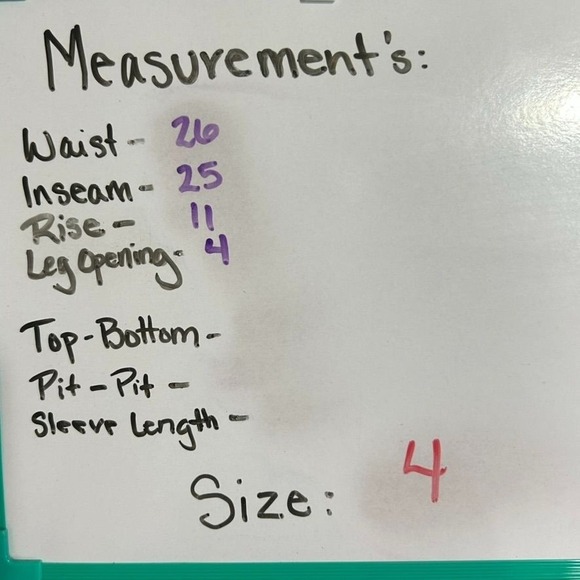 Measurement's:
Waist - 26
Inseam - 25
Rise - 11
Leg Opening - 4
Top-Bottom -
Pit-Pit -
Sleeve Length -
Size: 4